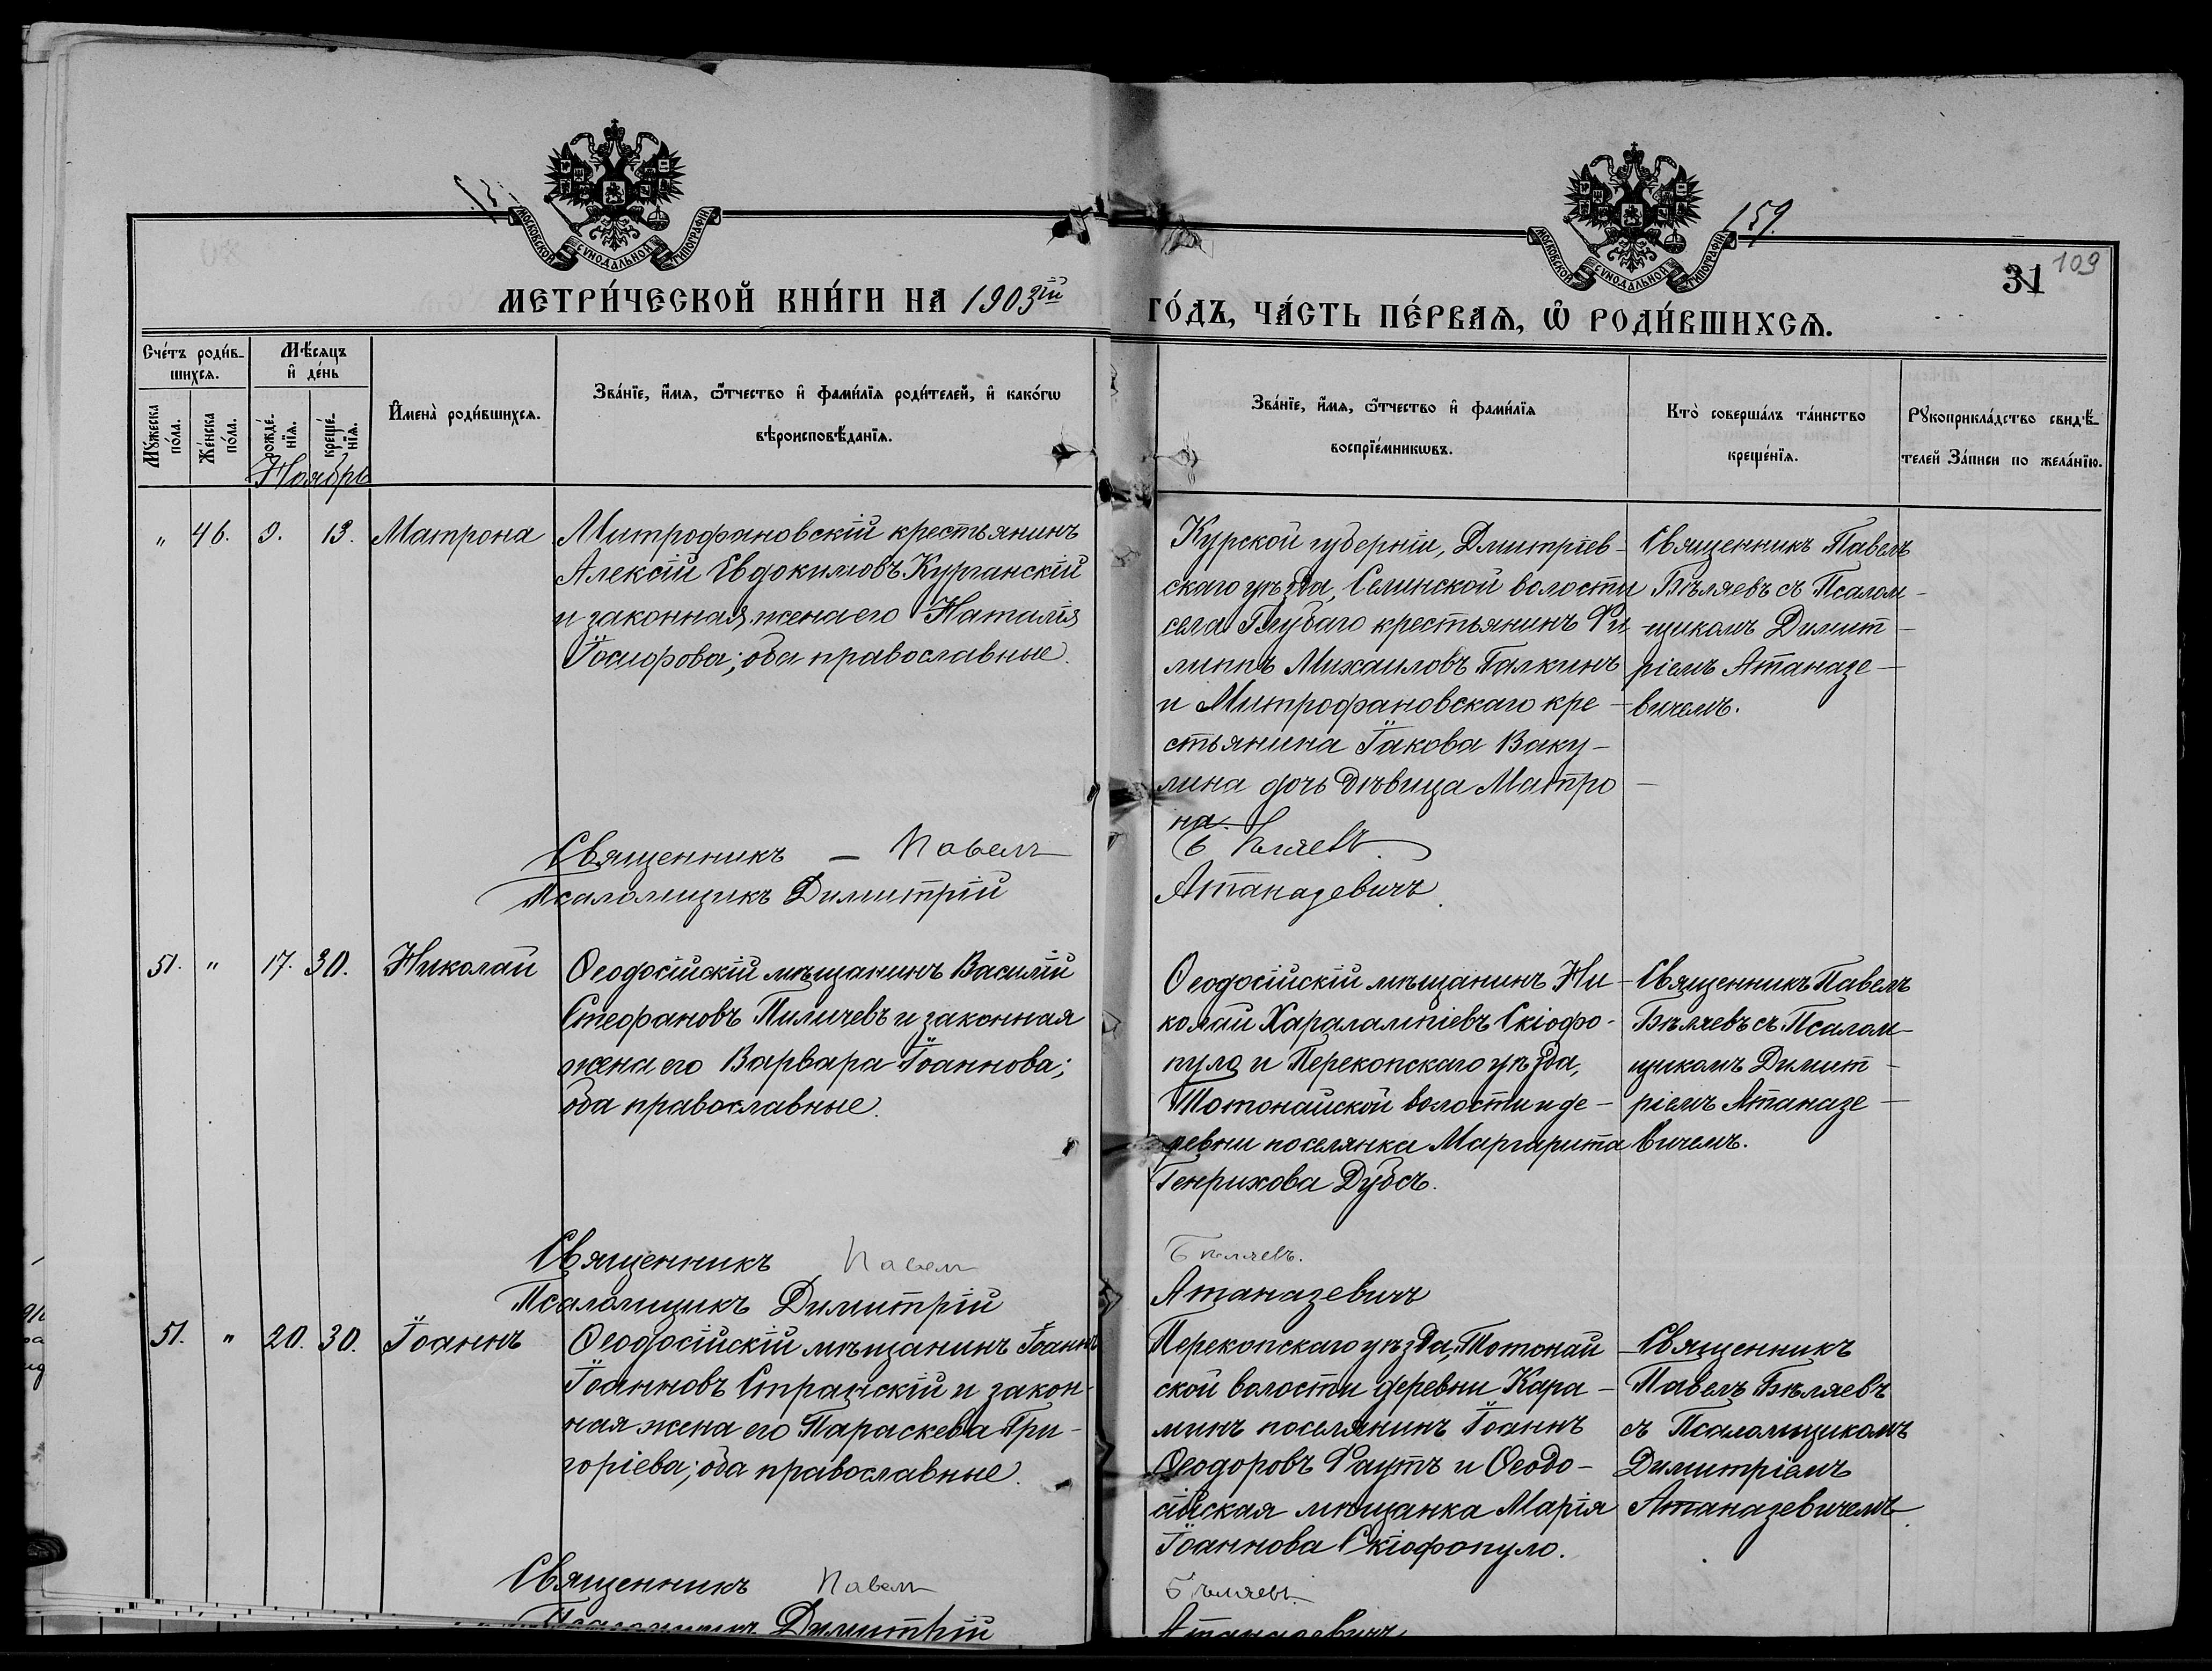 159
МОСКОВСКОЙ СѴНОДАЛЬНОЙ ТИПОГРАФІИ
МОСКОВСКОЙ СѴНОДАЛЬНОЙ ТИПОГРАФІИ
31 109
МЕТРИ́ЧЕСКОЙ КНИ́ГИ НА 1903ій ГО́ДЪ, ЧА́СТЬ ПЕ́РВАѦ, Ѡ҆ РОДИ́ВШИХСѦ.
Сче́тъ роди́в-
шихсѧ.
Мꙋ́жеска по́ла.
Же́нска по́ла.
Мѣ́сѧцъ
и҆ де́нь
рожде́-
нїѧ.
креще́-
нїѧ.
Ноябрь
И҆мена̀ роди́вшихсѧ.
Зва́нїе, и҆́мѧ, ѻ҆́тчество и҆ фами́лїѧ роди́телей, и҆ како́гѡ
вѣроисповѣ́данїѧ.
Зва́нїе, и҆́мѧ, ѻ҆́тчество и҆ фами́лїѧ
воспрїе́мникѡвъ.
Кто̀ соверша́лъ та́инство
креще́нїѧ.
Рꙋкоприкла́дство свидѣ́-
телей За́писи по жела́нїю.
" 46. 9. 13. Матрона
Митрофановскій крестьянинъ
Алексій Евдокимовъ Курганскій
и законная жена его Наталія
Іосифова; оба православные.
Курской губерніи, Дмитріев-
скаго уѣзда, Селинской волости
села Глубаго крестьянинъ Фи-
липпъ Михаиловъ Палкинъ
и Митрофановскаго кре-
стьянина Іакова Ваку-
лина дочь дѣвица Матро-
на.
Священникъ Павелъ
Бѣляевъ съ Псалом-
щикомъ Димит-
ріемъ Атаназе-
вичемъ.
Священникъ — Павелъ Бѣляевъ.
Псаломщикъ Димитрій Атаназевичъ.
51. " 17. 30. Николай
Ѳеодосійскій мѣщанинъ Василій
Стефановъ Пиличевъ и законная
жена его Варвара Іоаннова;
оба православные.
Ѳеодосійскій мѣщанинъ Ни-
колай Харалампіевъ Скіофо-
пуло и Перекопскаго уѣзда,
Тотонайской волости и де-
ревни поселянка Маргарита
Генрихова Дубсъ.
Священникъ Павелъ
Бѣляевъ съ Псалом-
щикомъ Димит-
ріемъ Атаназе-
вичемъ.
Священникъ Павелъ Бѣляевъ.
Псаломщикъ Димитрій Атаназевичъ
51. " 20. 30. Іоаннъ
Ѳеодосійскій мѣщанинъ Іоаннъ
Іоанновъ Странскій и закон-
ная жена его Параскева Гри-
горіева; оба православные.
Перекопскаго уѣзда, Тотонай-
ской волости деревни Кара-
минъ поселянинъ Іоаннъ
Ѳеодоровъ Фаутъ и Ѳеодо-
сійская мѣщанка Марія
Іоаннова Скіофопуло.
Священникъ
Павелъ Бѣляевъ
съ Псаломщикомъ
Димитріемъ
Атаназевичемъ.
Священникъ Павелъ Бѣляевъ.
Псаломщикъ Димитрій Атаназевичъ